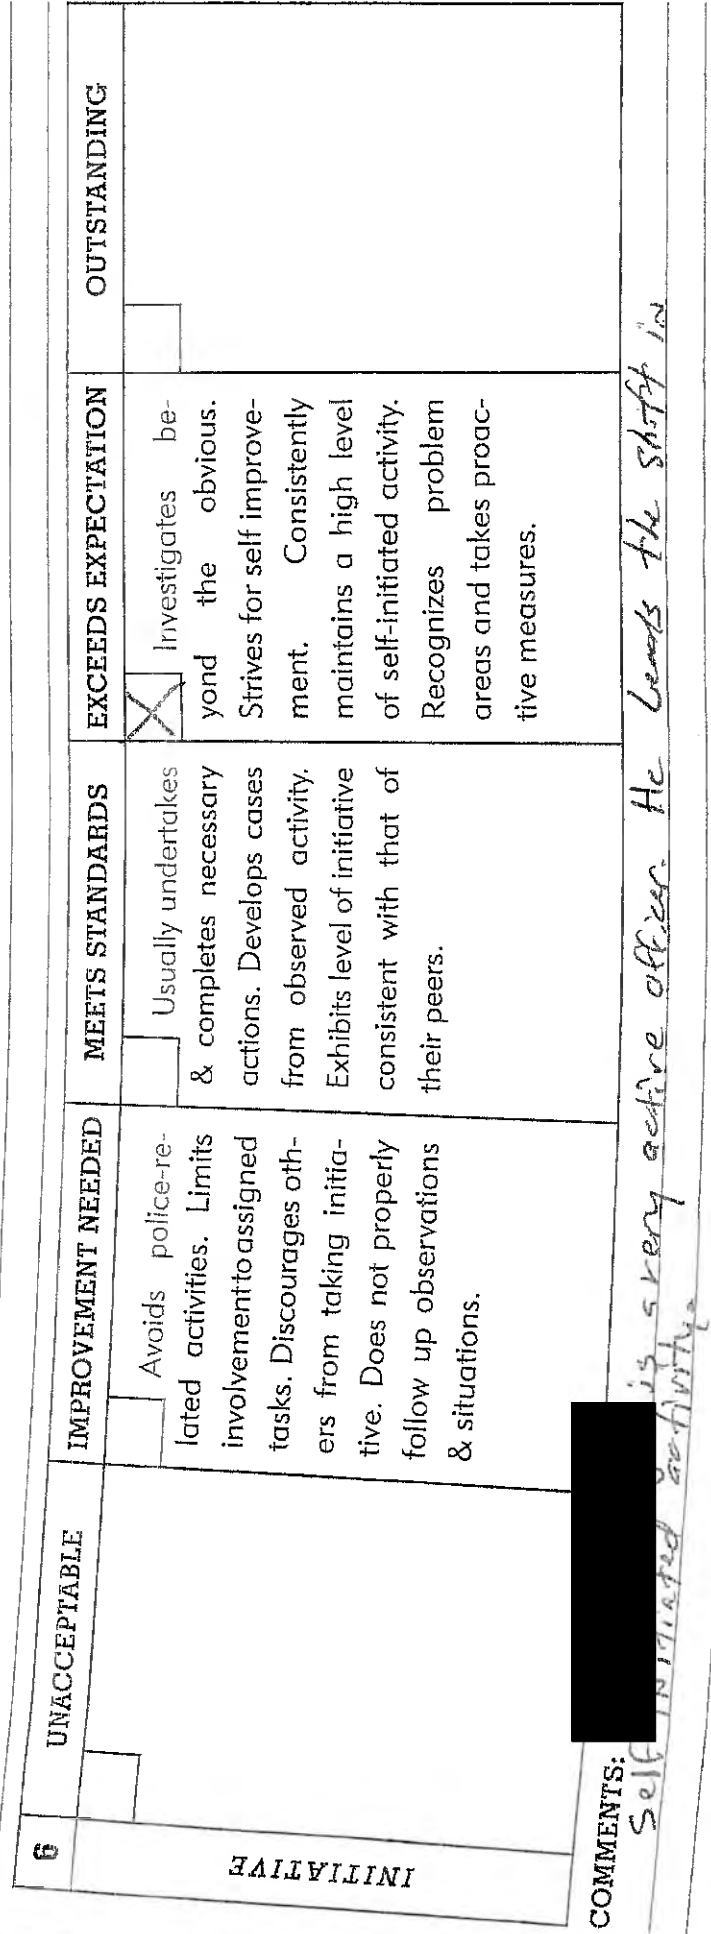 6
INITIATIVE
UNACCEPTABLE
IMPROVEMENT NEEDED
Avoids police-re-
lated activities. Limits
involvement to assigned
tasks. Discourages oth-
ers from taking initia-
tive. Does not properly
follow up observations
& situations.
MEETS STANDARDS
Usually undertakes
& completes necessary
actions. Develops cases
from observed activity.
Exhibits level of initiative
consistent with that of
their peers.
EXCEEDS EXPECTATION
Investigates be-
yond the obvious.
Strives for self improve-
ment. Consistently
maintains a high level
of self-initiated activity.
Recognizes problem
areas and takes proac-
tive measures.
OUTSTANDING
COMMENTS: is a very active officer. He leads the shift in
Self initiated activity.